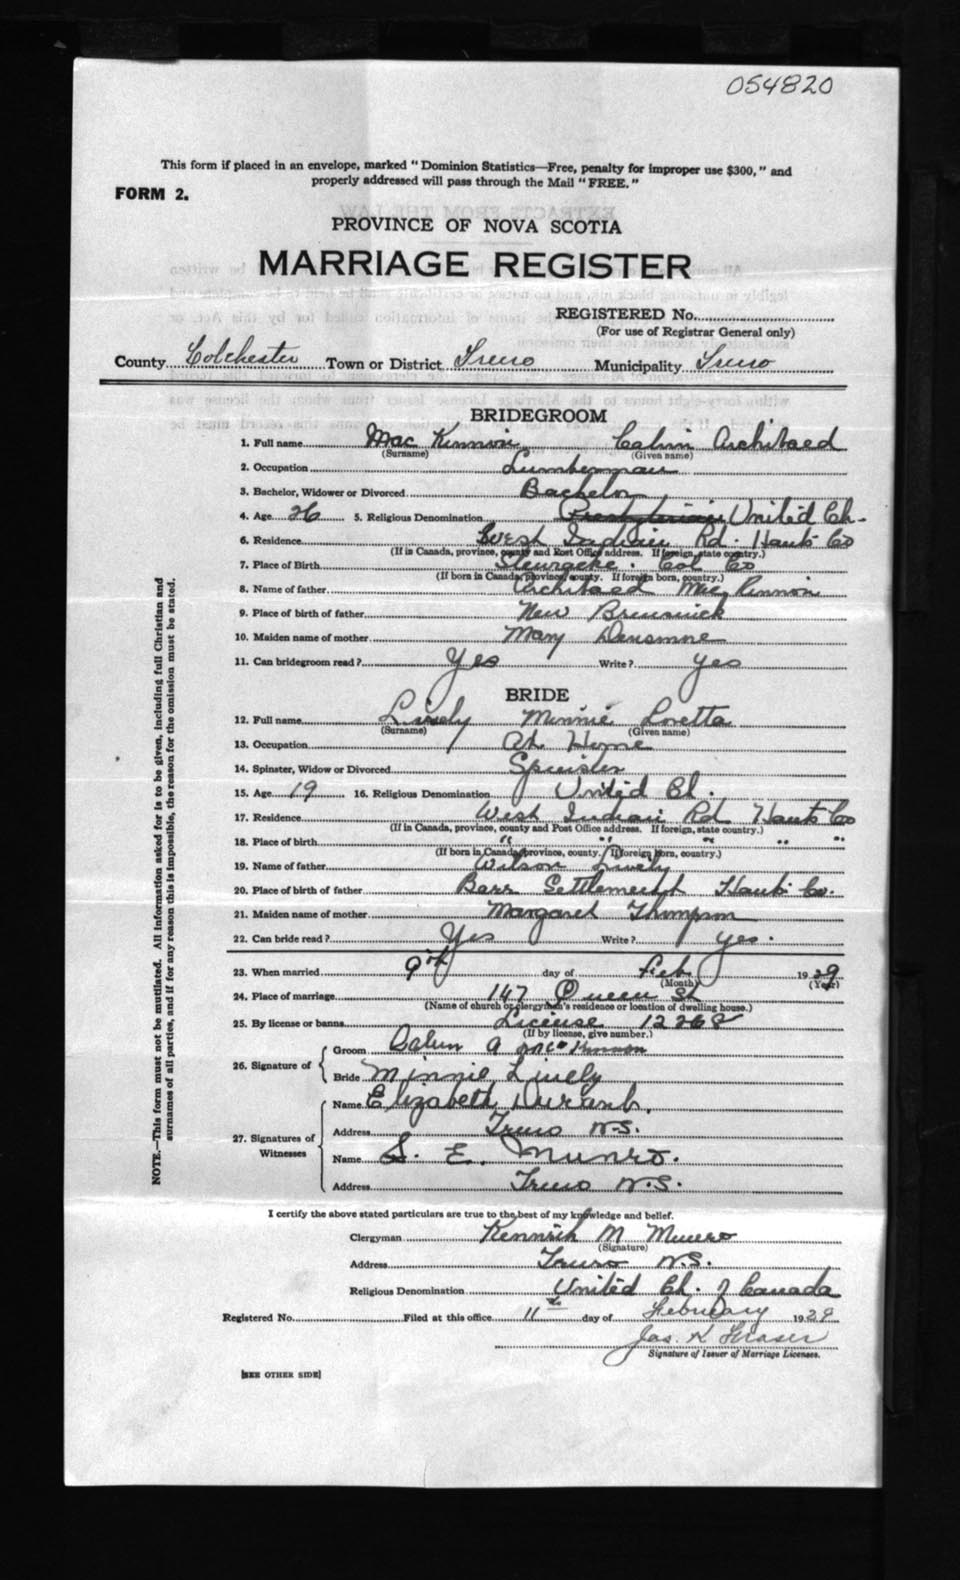 054820
This form if placed in an envelope, marked "Dominion Statistics—Free, penalty for improper use $300," and
properly addressed will pass through the Mail "FREE."
FORM 2.
PROVINCE OF NOVA SCOTIA
MARRIAGE REGISTER
REGISTERED No.
(For use of Registrar General only)
County Colchester Town or District Truro Municipality Truro
BRIDEGROOM
1. Full name Mac Kinnon Calvin Archibald
(Surname) (Given name)
2. Occupation Lumberman
3. Bachelor, Widower or Divorced Bachelor
4. Age 26 5. Religious Denomination Presbyterian United Ch.
6. Residence West Indian Rd. Hants Co
(If in Canada, province, county and Post Office address. If foreign, state country.)
7. Place of Birth Col Co
(If born in Canada, province, county. If foreign born, country.)
8. Name of father Archibald Mac Kinnon
9. Place of birth of father New Brunswick
10. Maiden name of mother Mary Densmore
11. Can bridegroom read? Yes Write? yes
BRIDE
12. Full name Lively Minnie Loretta
(Surname) (Given name)
13. Occupation At Home
14. Spinster, Widow or Divorced Spinster
15. Age 19 16. Religious Denomination United Ch.
17. Residence West Indian Rd Hants Co
(If in Canada, province, county and Post Office address. If foreign, state country.)
18. Place of birth " " " "
(If born in Canada, province, county. If foreign born, country.)
19. Name of father Wilson Lively
20. Place of birth of father Barr Settlement Hants Co.
21. Maiden name of mother Margaret Thompson
22. Can bride read? Yes Write? yes.
23. When married 9th day of Feb 1929
(Month) (Year)
24. Place of marriage 147 Queen St
(Name of church or clergymen's residence or location of dwelling house.)
25. By license or banns License 12268
(If by license, give number.)
26. Signature of
Groom Calvin A Mc Kinnon
Bride Minnie Lively
27. Signatures of Witnesses
Name Elizabeth
Address Truro N.S.
Name S. E. Munro.
Address Truro N.S.
I certify the above stated particulars are true to the best of my knowledge and belief.
Clergyman M Munro
(Signature)
Address Truro N.S.
Religious Denomination United Ch. of Canada
Registered No. Filed at this office 11th day of February 1929
Jas. K Fraser
Signature of Issuer of Marriage Licenses.
[SEE OTHER SIDE]
NOTE.—This form must not be mutilated. All information asked for is to be given, including full Christian and
surnames of all parties, and if for any reason this is impossible, the reason for the omission must be stated.